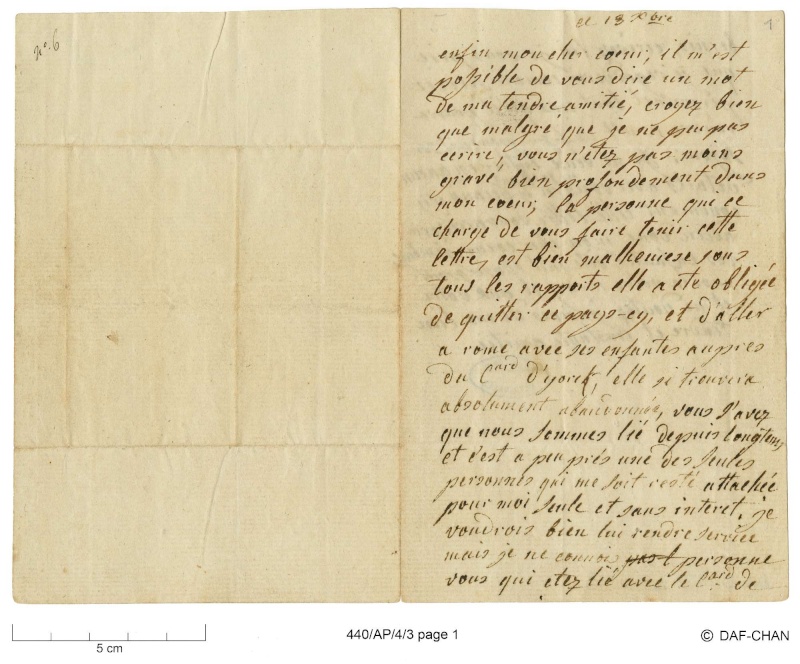 no. 6
ce 18 xbre
1
enfin mon cher coeur, il m'est
possible de vous dire un mot
de ma tendre amitié, croyez bien
que malgré que je ne peu pas
ecrire, vous n'etez pas moins
gravé bien profondement dans
mon coeur, la personne qui ce
charge de vous faire tenir cette
lettre, est bien malheurese sous
tous les rapports elle a ete obligée
de quitter ce pays-cy, et d'aller
a rome avec ses enfantes aupres
du Card d'yorck, elle si trouvera
absolument abandonnée, vous s'avez
que nous sommes lié depuis longtems
et c'est a peu prés une des seules
personnes qui me soit resté attachée
pour moi seule et sans interet, je
voudrois bien lui rendre service
mais je ne connois personne
vous qui etez lié avec le Card de
5 cm
440/AP/4/3 page 1
© DAF-CHAN